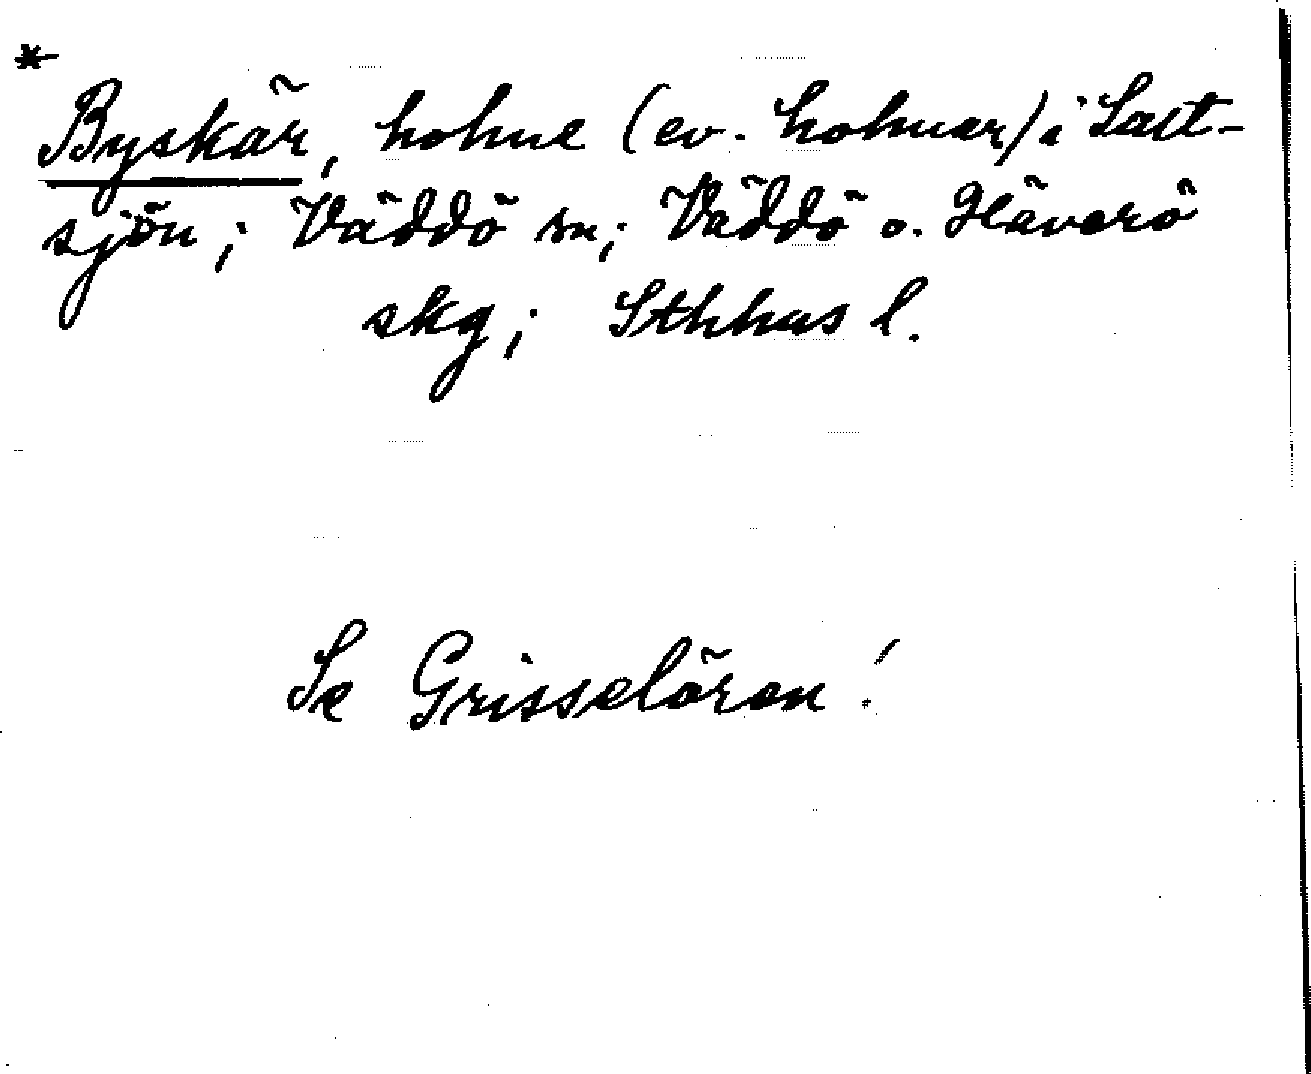 *
Byskär, holme (ev. holmar) i Salt-
sjön; Väddö sn; Väddö o. Häverö
skg; Sthlms l.
Se Grisselören!